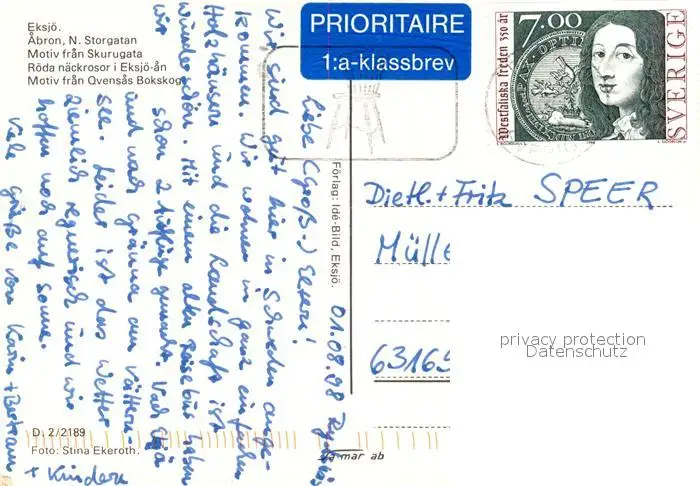 Eksjö.
Åbron, N. Storgatan
Motiv från Skurugata
Röda näckrosor i Eksjö-ån
Motiv från Qvensås Bokskog
PRIORITAIRE
1:a-klassbrev
Westfaliska freden 350 år
7.00
SVERIGE
01.08.98
Liebe (Groß-) Eltern!
Wir sind gut hier in Schweden ange-
kommen. Wir wohnen in ganz einfachen
Holzhäusern und die Landschaft ist
wunderschön. Mit einem alten Reisebus haben
wir schon 2 Ausflüge gemacht. Nach
und nach Gränna am Vättern
see. Leider ist das Wetter
ziemlich regnerisch und wir
hoffen noch auf Sonne.
Viele Grüße von Karin + Bertram
+ Kindern
Förlag: Idé-Bild, Eksjö.
Dietl. + Fritz SPEER
Mülle
63165
privacy protection
Datenschutz
D. 2/2189
Foto: Stina Ekeroth.
ab